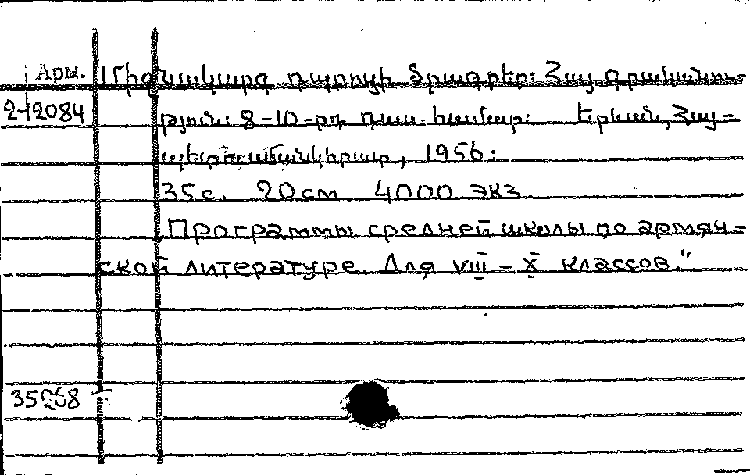 Арм. Միջնակարգ դպրոցի ծրագրեր: Հայ գրականու-
2-12084 թյուն: 8-10-րդ դաս. համար: Երևան, Հայ-
պետուսմանկհրատ, 1956:
35 с. 20 см 4000 экз.
„Программы средней школы по армян-
ской литературе. Для VIII – X классов.“